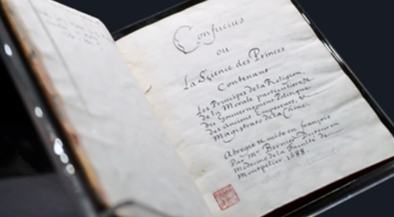 Confucius
ou
La Science des Princes
Contenant
Les Principes de la Religion,
de la Morale particulière,
du Gouvernement Politique
des Anciens Empereurs, et
Magistrats de la Chine.
Abregée et mise en françois
Par Mr. Bernier Docteur en
Medecine de la Faculté de
Montpelier. 1688.